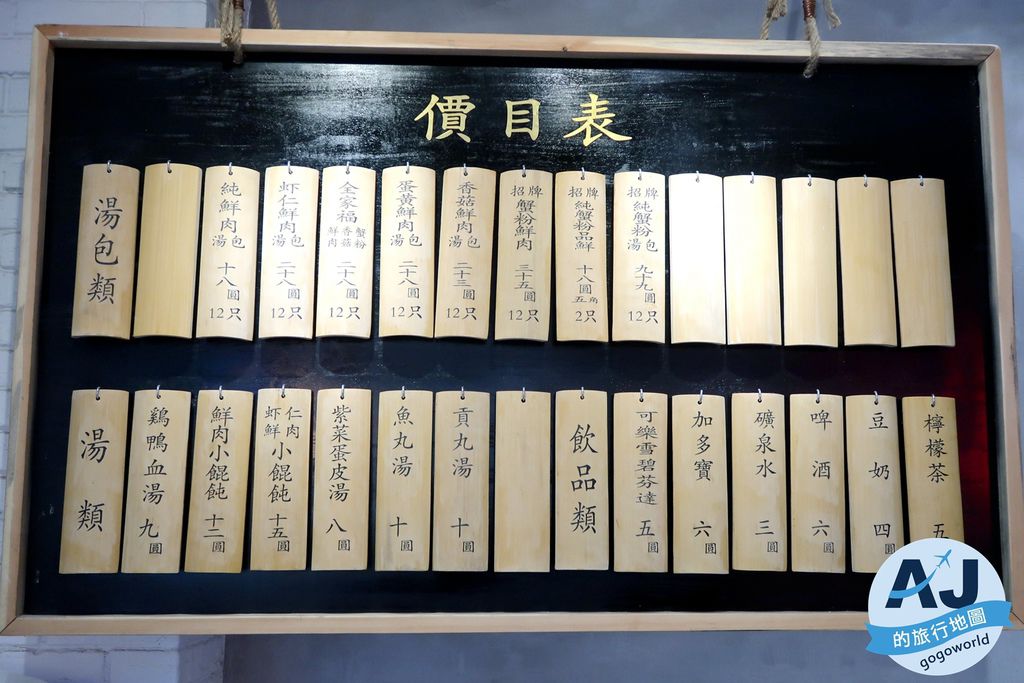 價目表
湯包類
純鮮肉湯包 十八圓 12只
虾仁鮮肉湯包 二十八圓 12只
全家福 鮮肉 香菇 蟹粉 二十八圓 12只
蛋黃鮮肉湯包 二十八圓 12只
香菇鮮肉湯包 二十三圓 12只
招牌 蟹粉鮮肉 三十五圓 12只
招牌 純蟹粉品鮮 十八圓五角 2只
招牌 純蟹粉湯包 九十九圓 12只
湯類
鷄鴨血湯 九圓
鮮肉小餛飩 十二圓
虾仁鮮肉小餛飩 十五圓
紫菜蛋皮湯 八圓
魚丸湯 十圓
貢丸湯 十圓
飲品類
可樂雪碧芬達 五圓
加多寶 六圓
礦泉水 三圓
啤酒 六圓
豆奶 四圓
檸檬茶 五
AJ
的旅行地圖
gogoworld